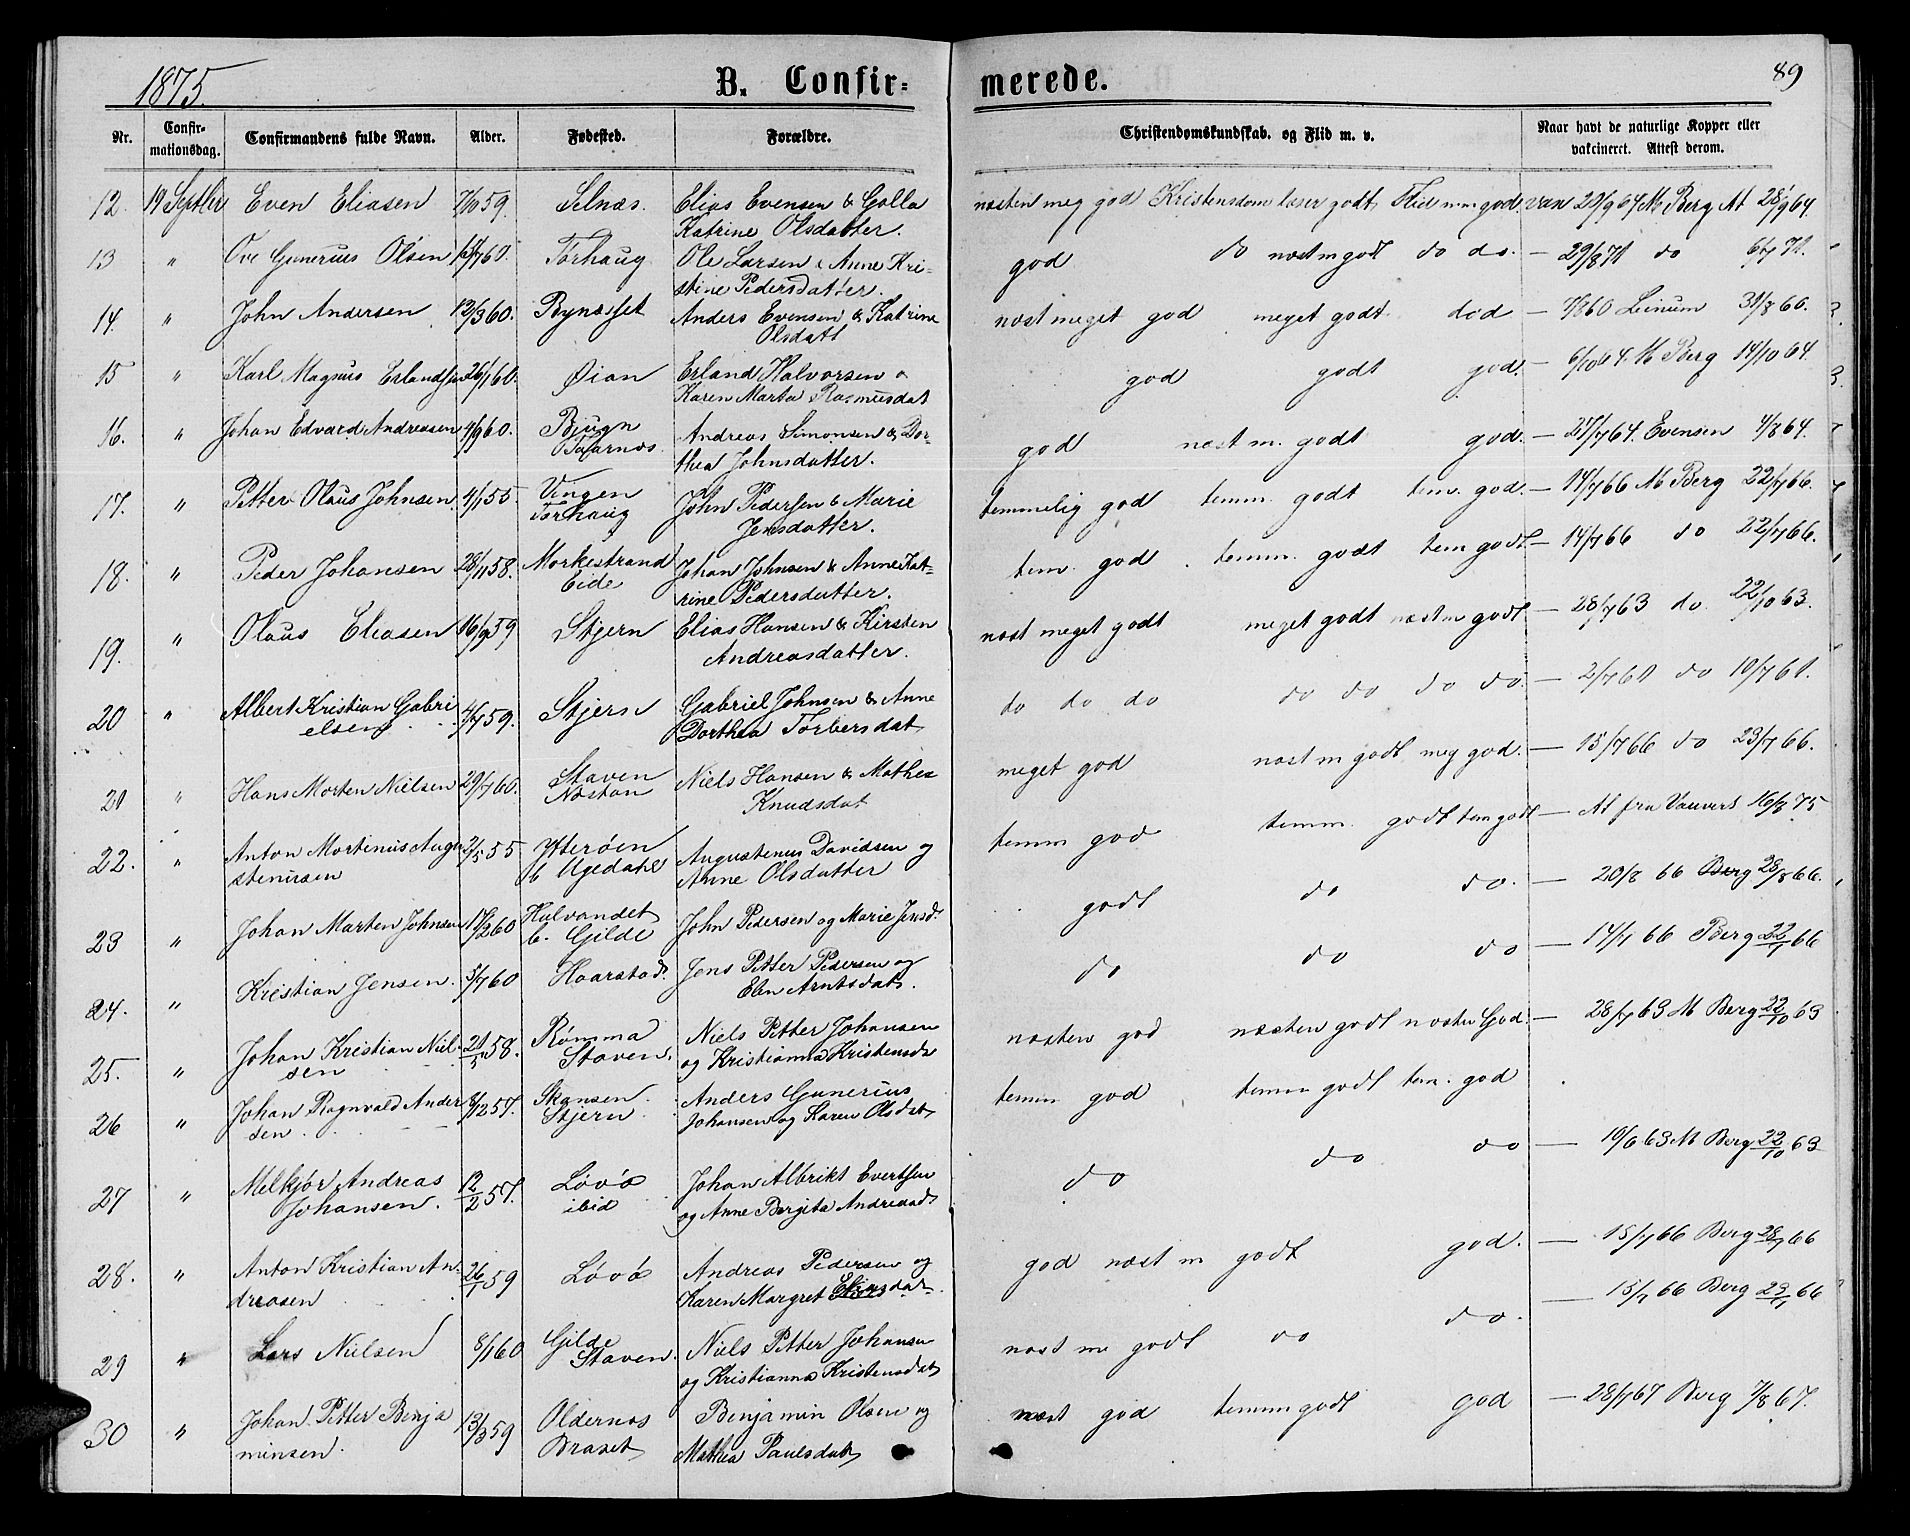 1875.
B. Confir-
merede.
89
Nr.
Confir-
mationsdag.
Confirmandens fulde Navn.
Alder.
Fødested.
Forældre.
Christendomskundskab. og Flid m. v.
Naar havt de naturlige Kopper eller
vakcineret. Attest derom.
12. 19 Septbr Even Eliasen 7/10 59. Selnæs. Elias Evensen & Golla
Katrine Olsdatter.
næsten meg god Kristensdom læser godt Flid m.m god. van 29/9 64 M Berg At 28/9 64.
13 " Ove Gunerius Olsen 60. Tørhaug Ole Larsen & Anne Kri-
stine Pedersdatter.
god do næst m godt do do. — 29/8 71 do 6/7 71.
14. " John Andersen 12/3 60. Bynæsset Anders Evensen & Katrine
Olsdatt
næst meget god meget godt — 7/8 60 31/8 60.
15 " Karl Magnus Erlandsen 26/1 60. Øian Erland Halvorsen &
Karen Marta Rasmusdat
god godt god. — 6/10 64. M Berg 14/10 64.
16. " Johan Edvard Andreasen 4/9 60. Bjugn
Andreas Simonsen & Dor-
thea Johnsdatter.
god næst m. godt god. — 27/7 64. Evensen 4/8 64.
17. " Petter Olaus Johnsen 4/1 55 Vengen
Tørhaug John Pedersen & Marie
Jensdatter.
temmelig god temm. godt tem. god. — 14/7 66 M Berg 22/7 66.
18. " Peder Johansen 28/11 58. Morkestrand
Eide Johan Johnsen & Anne Kat-
rine Pedersdatter.
tem. god temm. godt tem godt — 14/7 66 do 22/7 66.
19. " Olaus Eliasen 16/9 59 Stjern Elias Hansen & Kirsten
Andreasdatter.
næst meget godt meget godt næst m godt — 28/7 63 do. 22/10 63.
20 " Albert Kristian Gabri
elsen 4/7 59. Stjern Gabriel Johnsen & Anne
Dorthea Torbersdat
do do do do do do do. — 2/7 61 do 10/7 61.
21 " Hans Morten Nielsen 29/7 60. Staven
Næstan Niels Hansen & Mathea
Knudsdat
meget god næst m godt meg god. — 15/7 66 do 23/7 66.
22. " Anton Martinus Augu
stenusen 2/5 55 Ytterøen
Augustenus Davidsen og
Anne Olsdatter
temm god temm. godt tem godt — At fra 16/3 75
23 " Johan Marten Johnsen 17/2 60 Halvandet
b. Gilde John Pedersen og Marie Jensd.
godt do do. — 20/8 66 Berg 28/8 66.
24. " Kristian Jensen. 5/7 60 Haarstad. Jens Petter Pedersen og
Elen Arntsdat.
do do do — 14/7 66 Berg 22/7 66
25. " Johan Kristian Niel-
sen 21/5 58. Rømma
Staven. Niels Petter Johansen
og Kristianna Kristensd
næsten god næsten godt næsten God. — 28/7 63 M Berg 22/10 63
26 " Johan Ragnvald Ander
sen 8/12 57. Skansen.
Stjern Anders Gunerius
Johansen og Karen Olsdat
temm god temm godt tem. god
27 " Melkjør Andreas
Johansen. 12/2 57. Løvø
ibid Johan Albrikt Evertsen
og Anne Bergita Andreasd
do do do — 10/6 63 M Berg 22/10 63
28. " Anton Kristian An-
dreasen 26/1 59 Løvø Andreas Pedersen og
Karen Margret Eliasdat.
god næst m godt god. — 15/7 66 Berg 28/7 66
29 " Lars Nielsen 8/1 60 Gilde
Staven. Niels Petter Johansen
og Kristianna Kristensdat
næst m godt do do. — 15/7 66 Berg 66
30 " Johan Petter Benja
minsen. 13/3 59 Oldernæs
Braset Benjamin Olsen og
Mathea Paulsdat
næst god temm godt god — 28/7 67 Berg 7/8 67.